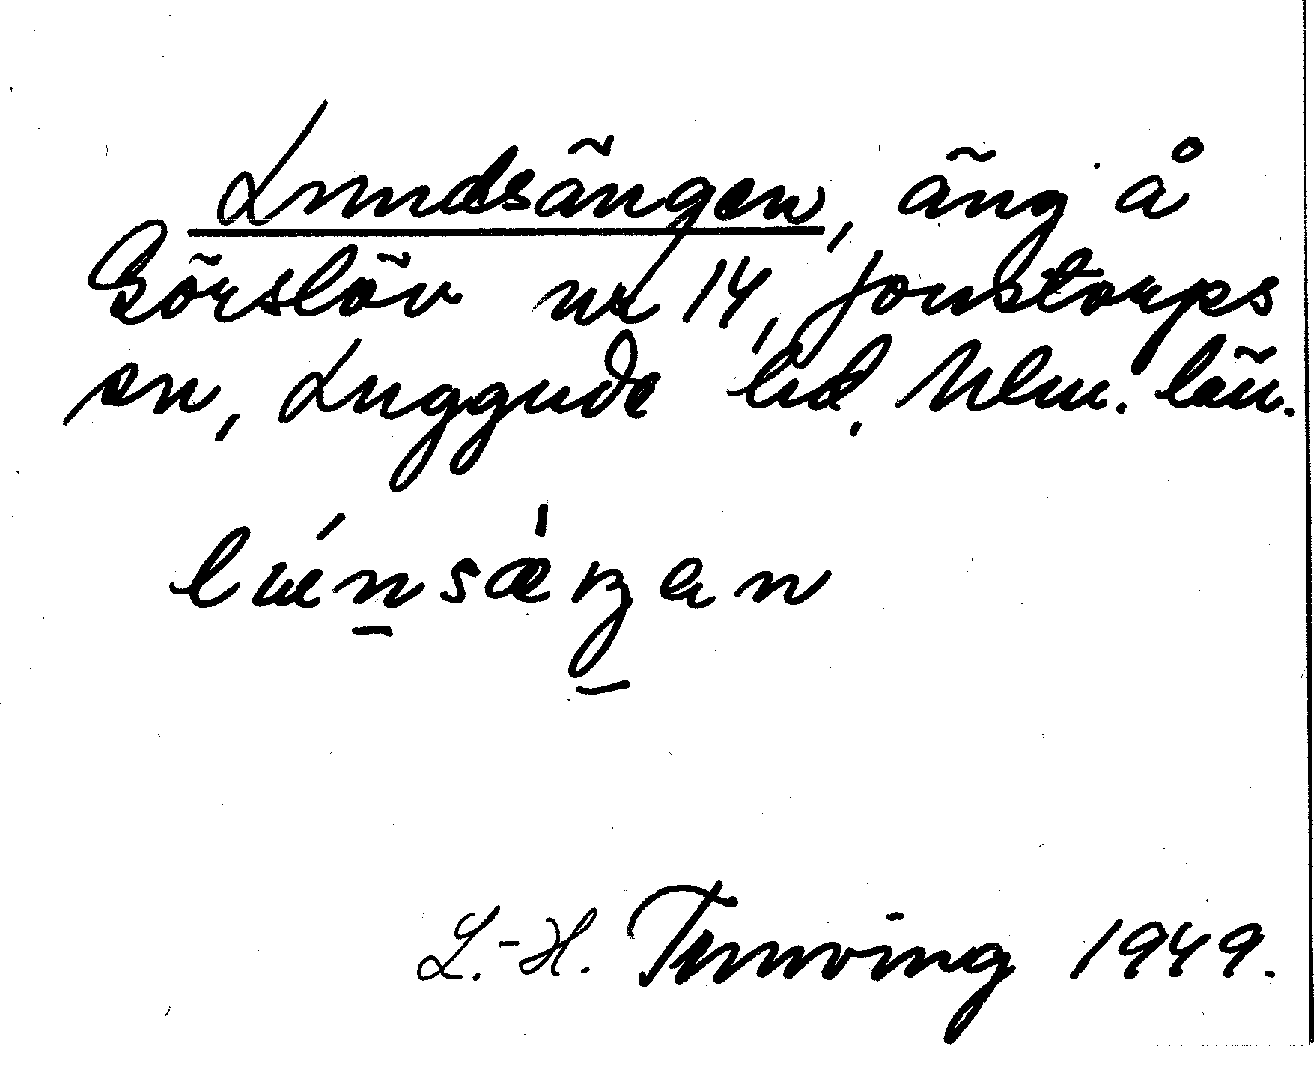 Lundsängen, äng å
Görslöv nr 14, Jonstorps
sn, Luggude hd, Mlm. län.
luénsæ̍ŋan
L.-H. Tunving 1949.